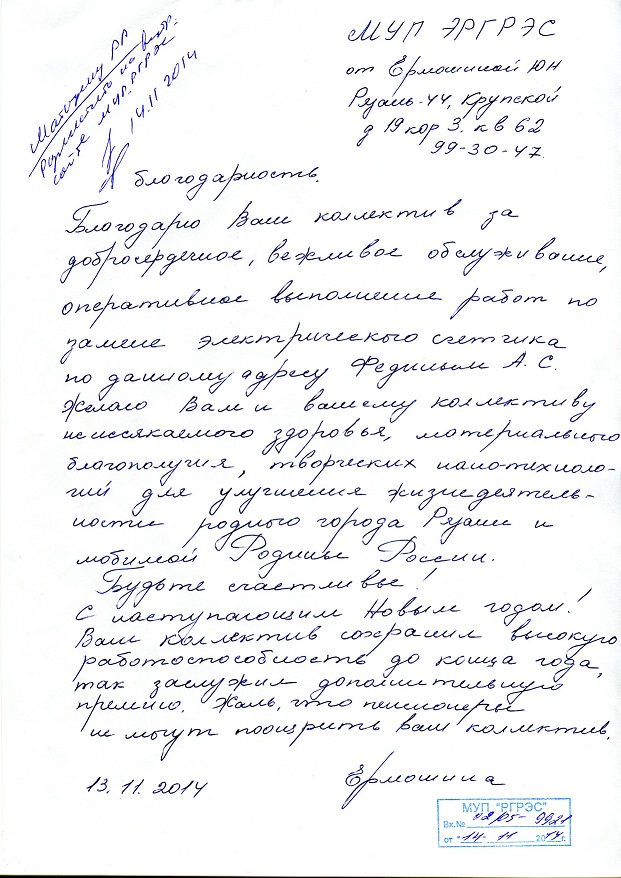 МУП ЭРГРЭС
от Ермошиной ЮН
Рязань-44, Крупской
д 19 кор 3. кв 62
99-30-47.
Матюшину РР
Разместить на внутр.
сайте МУП "РГРЭС
14.11 2014
благодарность.
Благодарю Ваш коллектив за
добросердечное, вежливое обслуживание,
оперативное выполнение работ по
замене электрического счетчика
по данному адресу Фединым А.С.
Желаю Вам и вашему коллективу
неиссякаемого здоровья, материального
благополучия, творческих нано-техноло-
гий для улучшения жизнедеятель-
ности родного города Рязани и
любимой Родины России.
Будьте счастливы!
С наступающим Новым годом!
Ваш коллектив сохранил высокую
работоспособность до конца года,
так заслужил дополнительную
премию. Жаль, что пенсионеры
не могут поощрить ваш коллектив.
13.11.2014 Ермошина
МУП "РГРЭС"
Вх.№ 02/05-9921
от "14" 11 2014г.